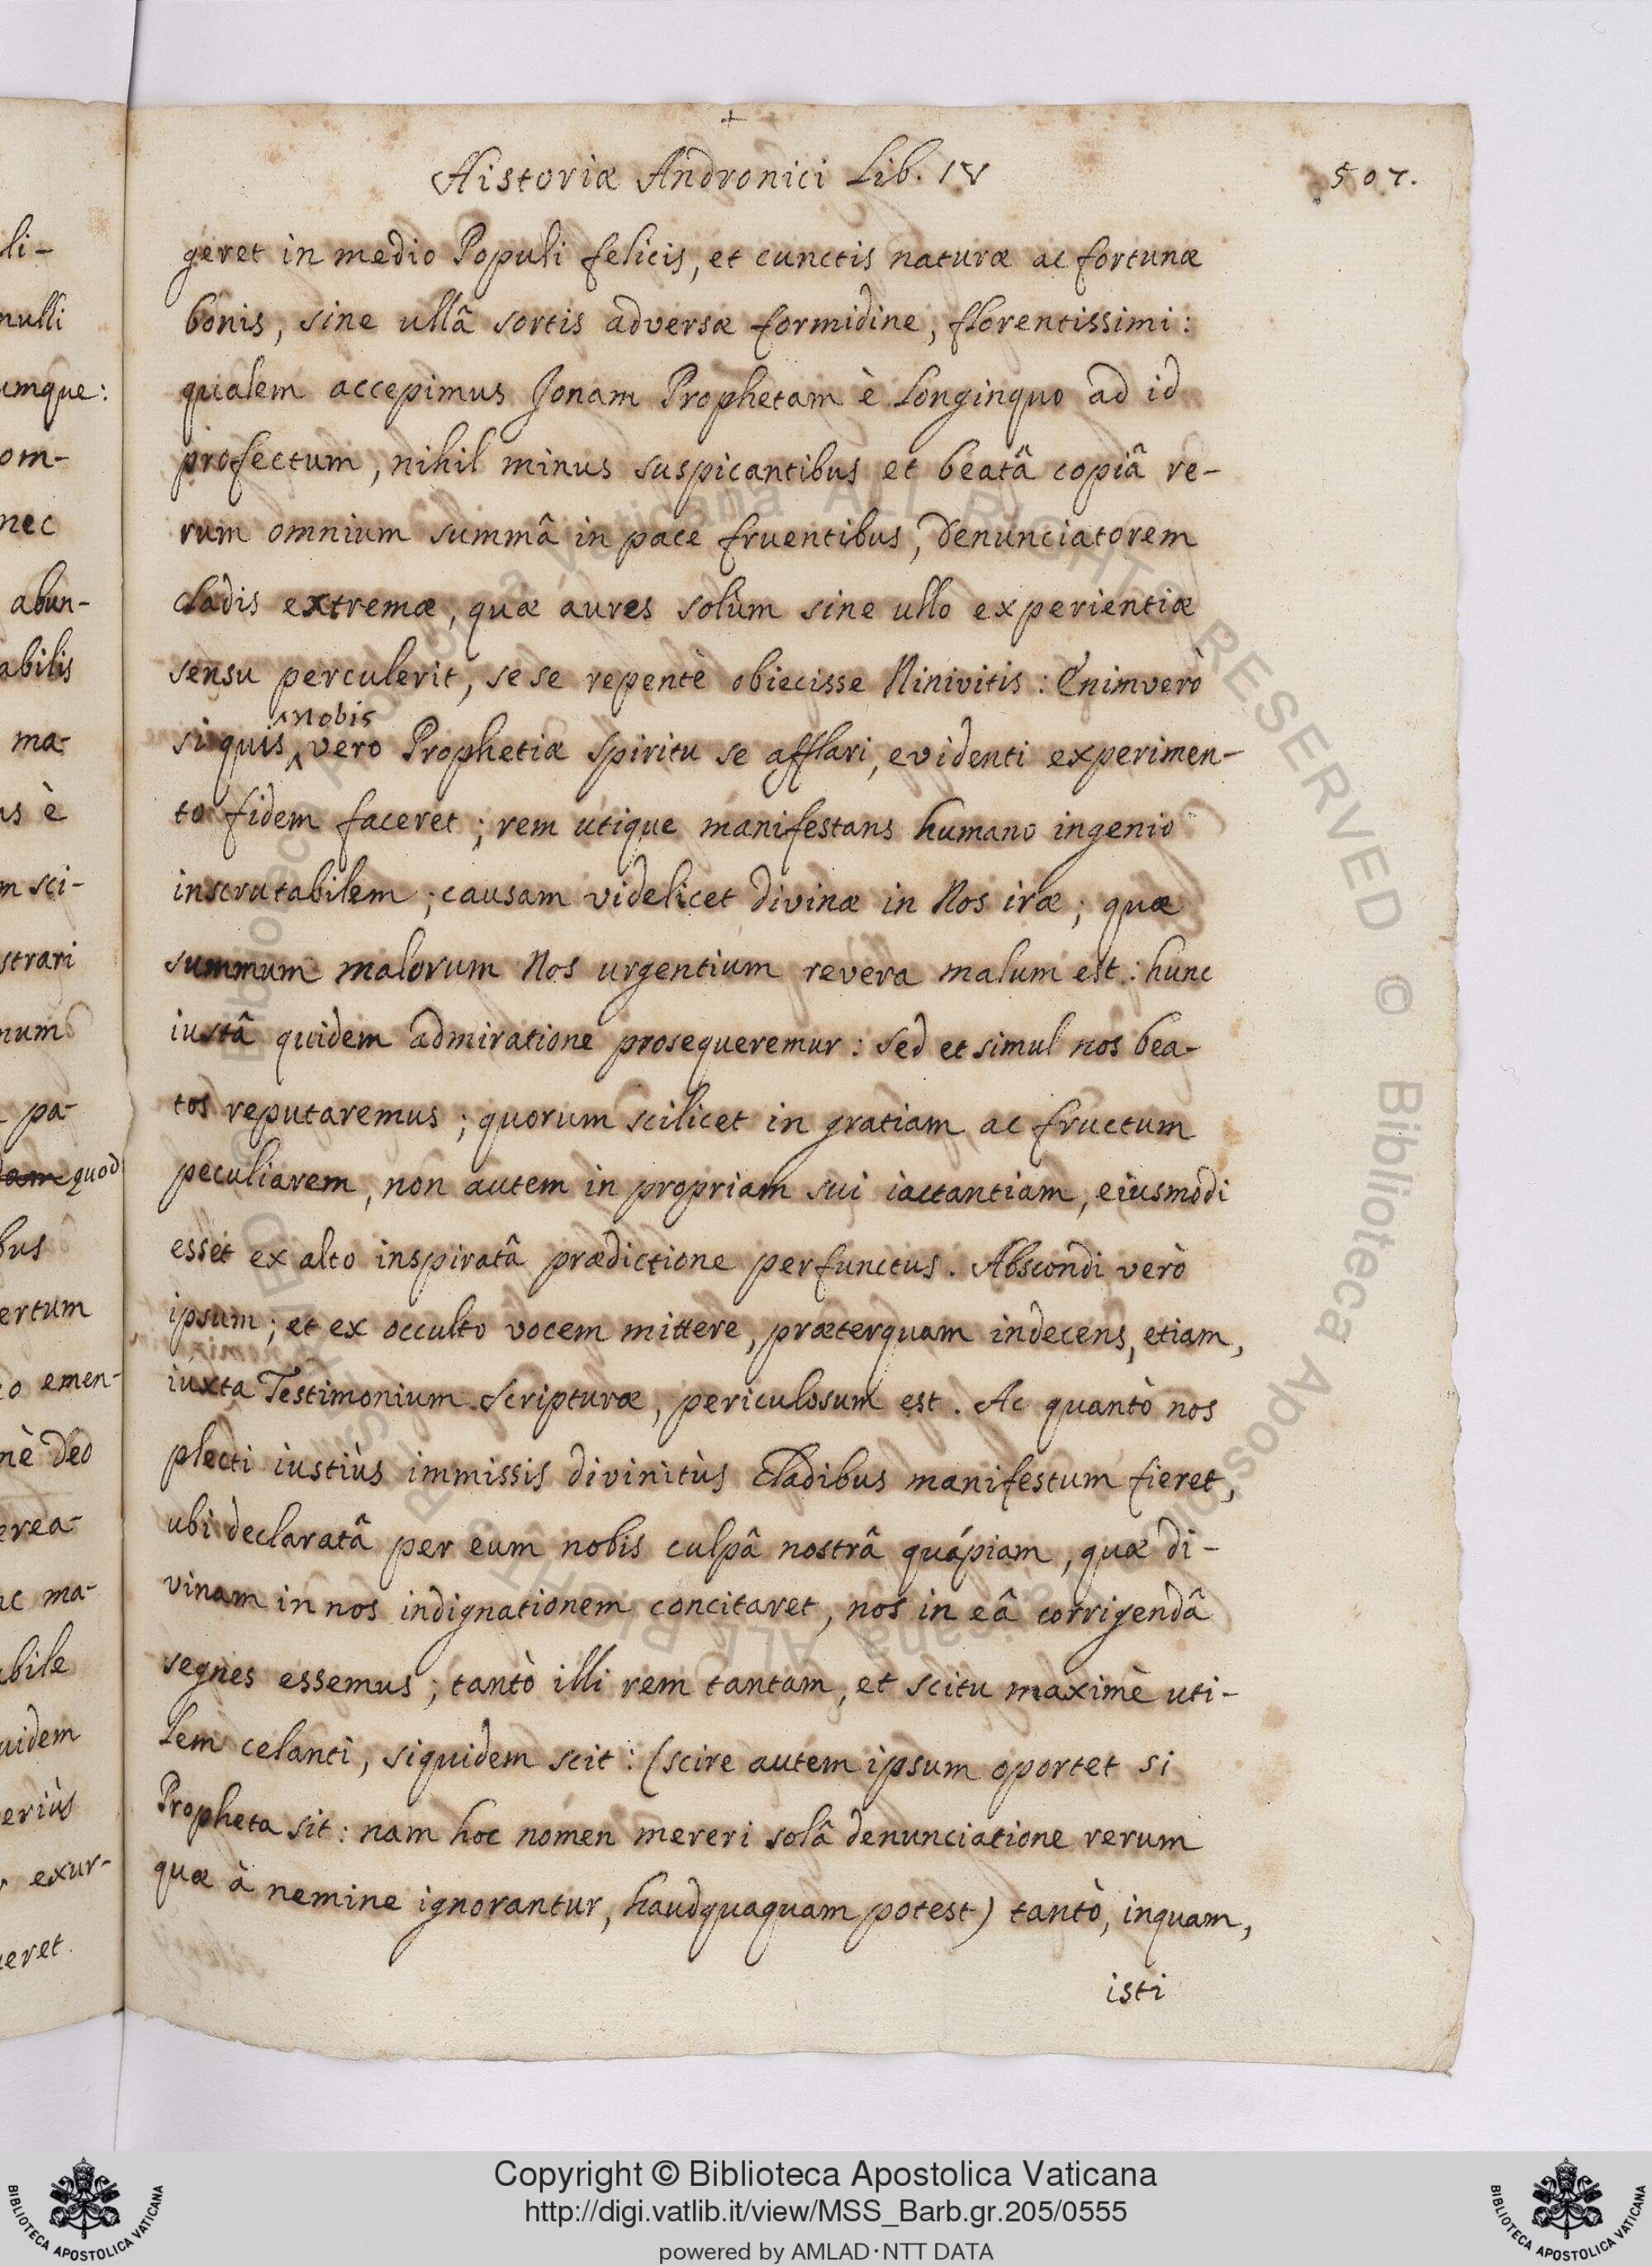 +
Historiæ Andronici Lib. IV
507.
geret in medio Populi felicis, et cunctis naturæ ac fortunæ
bonis, sine ullâ sortis adversæ formidine, florentissimi:
qualem accepimus Jonam Prophetam è longinquo ad id
profectum, nihil minus suspicantibus et beatâ copiâ re-
rum omnium summâ in pace fruentibus, denunciatorem
cladis extremæ, quæ aures solùm sine ullo experientiæ
sensu perculerit, sese repentè obiecisse Ninivitis: Enimverò
nobis
siquis vero Prophetiæ spiritu se afflari, evidenti experimen-
to fidem faceret; rem utique manifestans humano ingenio
inscrutabilem; causam videlicet divinæ in Nos iræ; quæ
summum malorum Nos urgentium revera malum est: hunc
iustâ quidem admiratione prosequeremur: sed et simul nos bea-
tos reputaremus; quorum scilicet in gratiam ac fructum
peculiarem, non autem in propriam sui iactantiam, eiusmodi
esset ex alto inspiratâ prædictione perfunctus. Abscondi verò
ipsum; et ex occulto vocem mittere, præterquam indecens, etiam,
iuxta Testimonium Scripturæ, periculosum est. Ac quantò nos
plecti iustiùs immissis divinitùs cladibus manifestum fieret,
ubi declaratâ per eum nobis culpâ nostrâ quápiam, quæ di-
vinam in nos indignationem concitaret, nos in eâ corrigendâ
segnes essemus; tantò illi rem tantam, et scitu maximè uti-
lem celanti, siquidem scit: (scire autem ipsum oportet si
Propheta sit: nam hoc nomen mereri solâ denunciatione rerum
quæ à nemine ignorantur, haudquaquam potest) tantò, inquam,
isti
li-
nulli
umque:
om-
nec
abun-
abilis
ma-
us è
m sci-
strari
num
pa-
quod
bus
ertum
o emen-
nè Deo
erea-
ac ma-
abile
uidem
eriùs
exur-
eret.
Copyright © Biblioteca Apostolica Vaticana
http://digi.vatlib.it/view/MSS_Barb.gr.205/0555
powered by AMLAD·NTT DATA
BIBLIOTECA APOSTOLICA VATICANA
BIBLIOTECA APOSTOLICA VATICANA